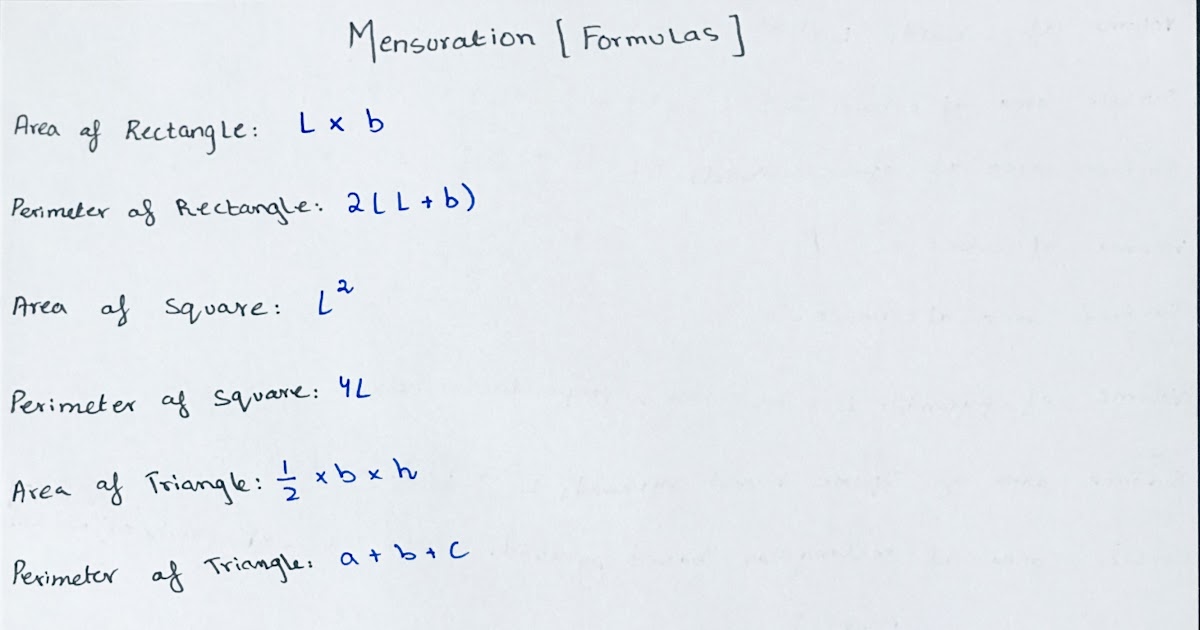 Mensuration [Formulas]
Area of Rectangle: L × b
Perimeter of Rectangle: 2(L + b)
Area of Square: L²
Perimeter of Square: 4L
Area of Triangle: 1/2 × b × h
Perimeter of Triangle: a + b + c